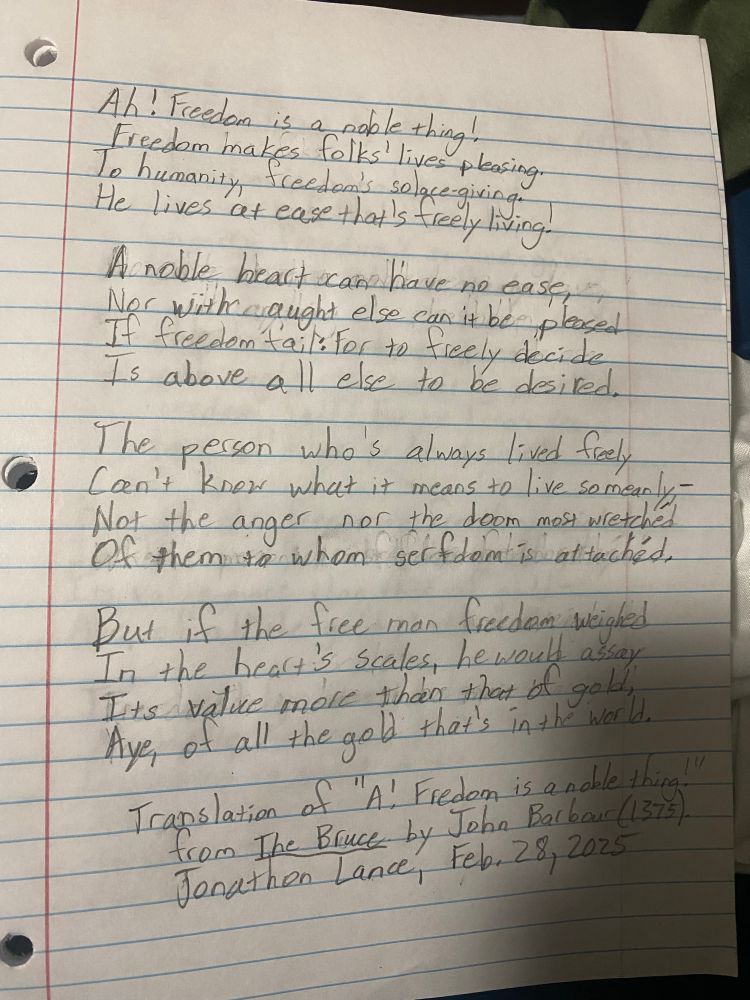 Ah! Freedom is a noble thing!
Freedom makes folks' lives pleasing.
To humanity, freedom's solace-giving.
He lives at ease that's freely living!
A noble heart can have no ease,
Nor with aught else can it be pleased
If freedom fail: For to freely decide
Is above all else to be desired.
The person who's always lived freely
Can't know what it means to live so meanly–
Not the anger nor the doom most wretchéd
Of them to whom serfdom is attachéd.
But if the free man freedom weighed
In the heart's scales, he would assay
Its value more than that of gold,
Aye, of all the gold that's in the world.
Translation of "A! Fredom is a noble thing!"
from The Bruce by John Barbour (1375).
Jonathon Lance, Feb. 28, 2025